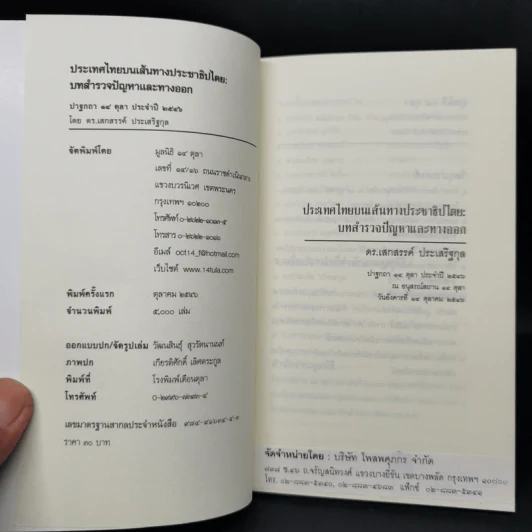 ประเทศไทยบนเส้นทางประชาธิปไตย:
บทสำรวจปัญหาและทางออก
ปาฐกถา ๑๔ ตุลา ประจำปี ๒๕๔๖
โดย ดร.เสกสรรค์ ประเสริฐกุล
จัดพิมพ์โดย มูลนิธิ ๑๔ ตุลา
เลขที่ ๑๔/๑๖ ถนนราชดำเนินกลาง
แขวงบวรนิเวศ เขตพระนคร
กรุงเทพฯ ๑๐๒๐๐
โทรศัพท์
โทรสาร
อีเมล์ oct14_f@hotmail.com
เว็บไซต์ www.14tula.com
พิมพ์ครั้งแรก ตุลาคม ๒๕๔๖
จำนวนพิมพ์ ๕,๐๐๐ เล่ม
ออกแบบปก/จัดรูปเล่ม วัฒนสินธุ์ สุวรัตนานนท์
ภาพปก เกียรติศักดิ์ เลิศตระกูล
พิมพ์ที่ โรงพิมพ์เดือนตุลา
โทรศัพท์
เลขมาตรฐานสากลประจำหนังสือ
ราคา ๓๐ บาท
ประเทศไทยบนเส้นทางประชาธิปไตย:
บทสำรวจปัญหาและทางออก
ดร.เสกสรรค์ ประเสริฐกุล
ปาฐกถา ๑๔ ตุลา ประจำปี ๒๕๔๖
ณ อนุสรณ์สถาน ๑๔ ตุลา
วันอังคารที่ ๑๔ ตุลาคม ๒๕๔๖
จัดจำหน่ายโดย : บริษัท โพสพศุภกร จำกัด
ซ.๔๖ ถ.จรัญสนิทวงศ์ แขวงบางยี่ขัน เขตบางพลัด กรุงเทพฯ ๑๐๗๐๐
โทร. แฟ็กซ์